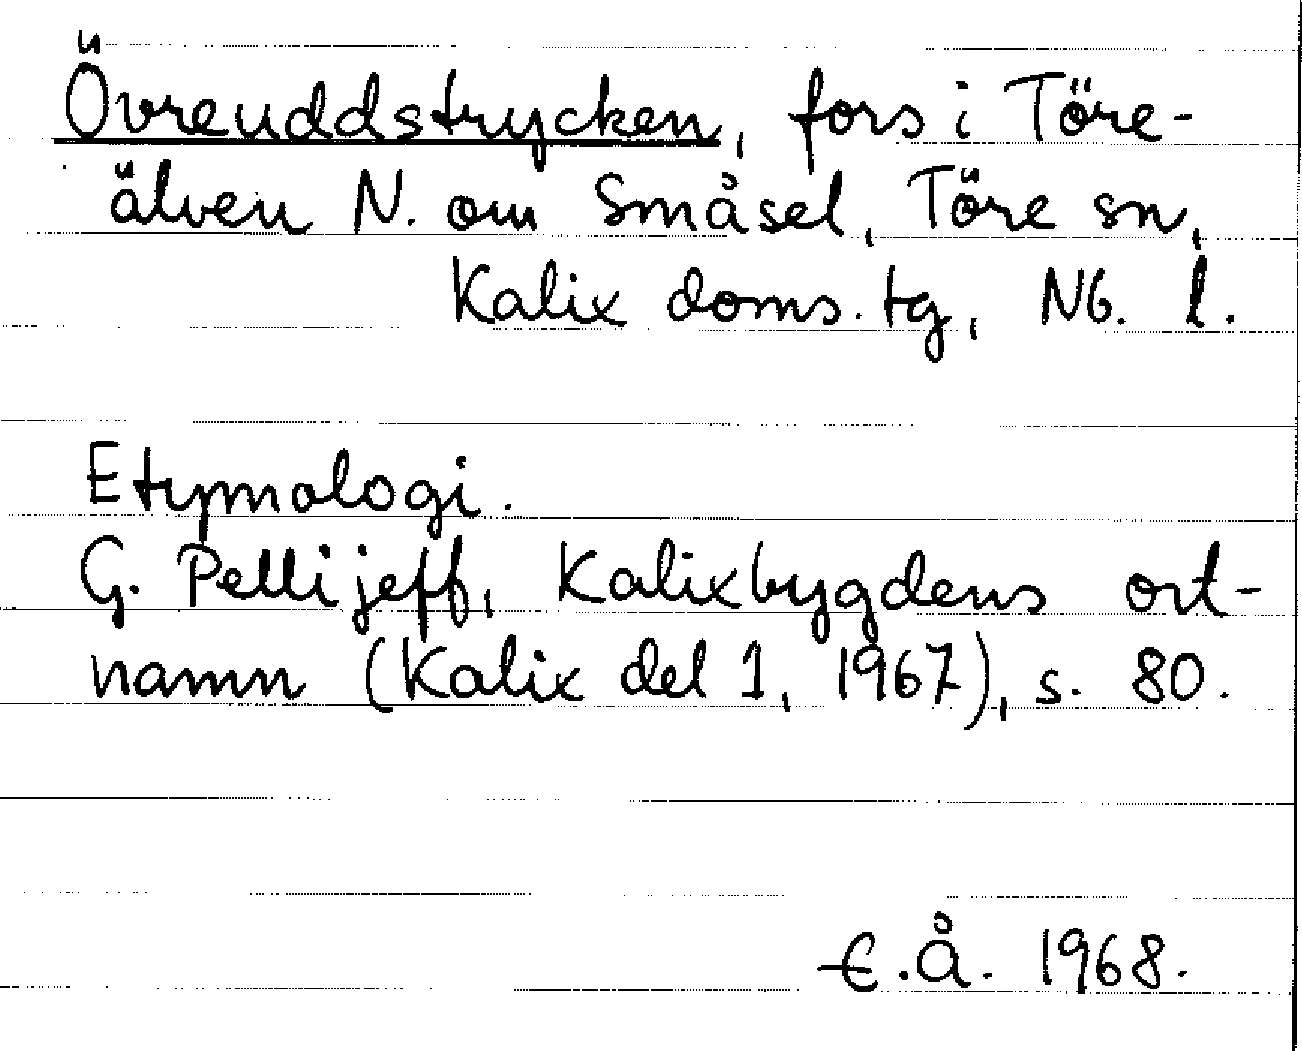 Övreuddstrycken, fors i Töre-
älven N. om Småsel, Töre sn,
Kalix doms. tg, Nb. l.
Etymologi.
G. Pellijeff, Kalixbygdens ort-
namn (Kalix del 1, 1967), s. 80.
E.Å. 1968.